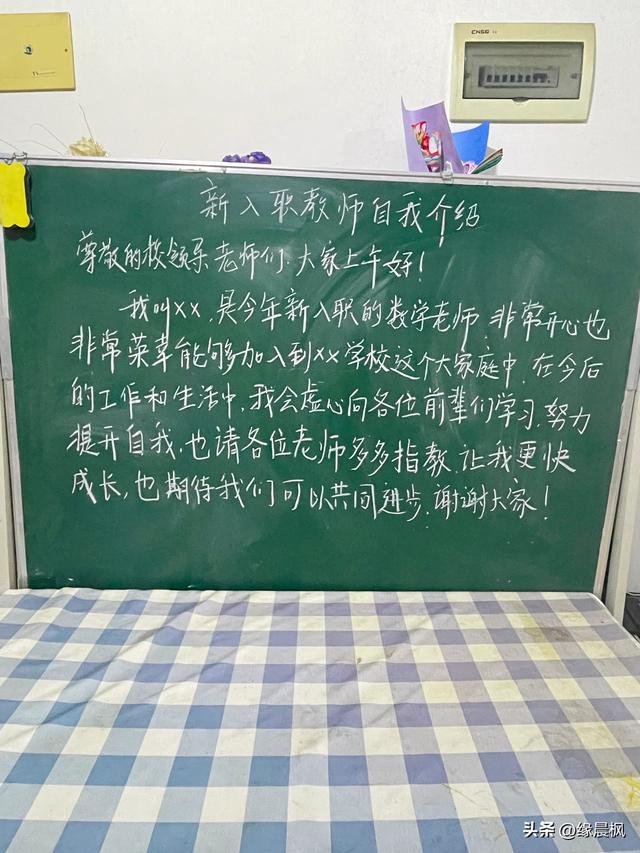 CNSG
新入职教师自我介绍
尊敬的校领导、老师们、大家上午好！
我叫xx，是今年新入职的数学老师，非常开心也
非常荣幸能够加入到xx学校这个大家庭中，在今后
的工作和生活中，我会虚心向各位前辈们学习，努力
提升自我，也请各位老师多多指教，让我更快
成长，也期待我们可以共同进步，谢谢大家！
头条 @缘晨枫